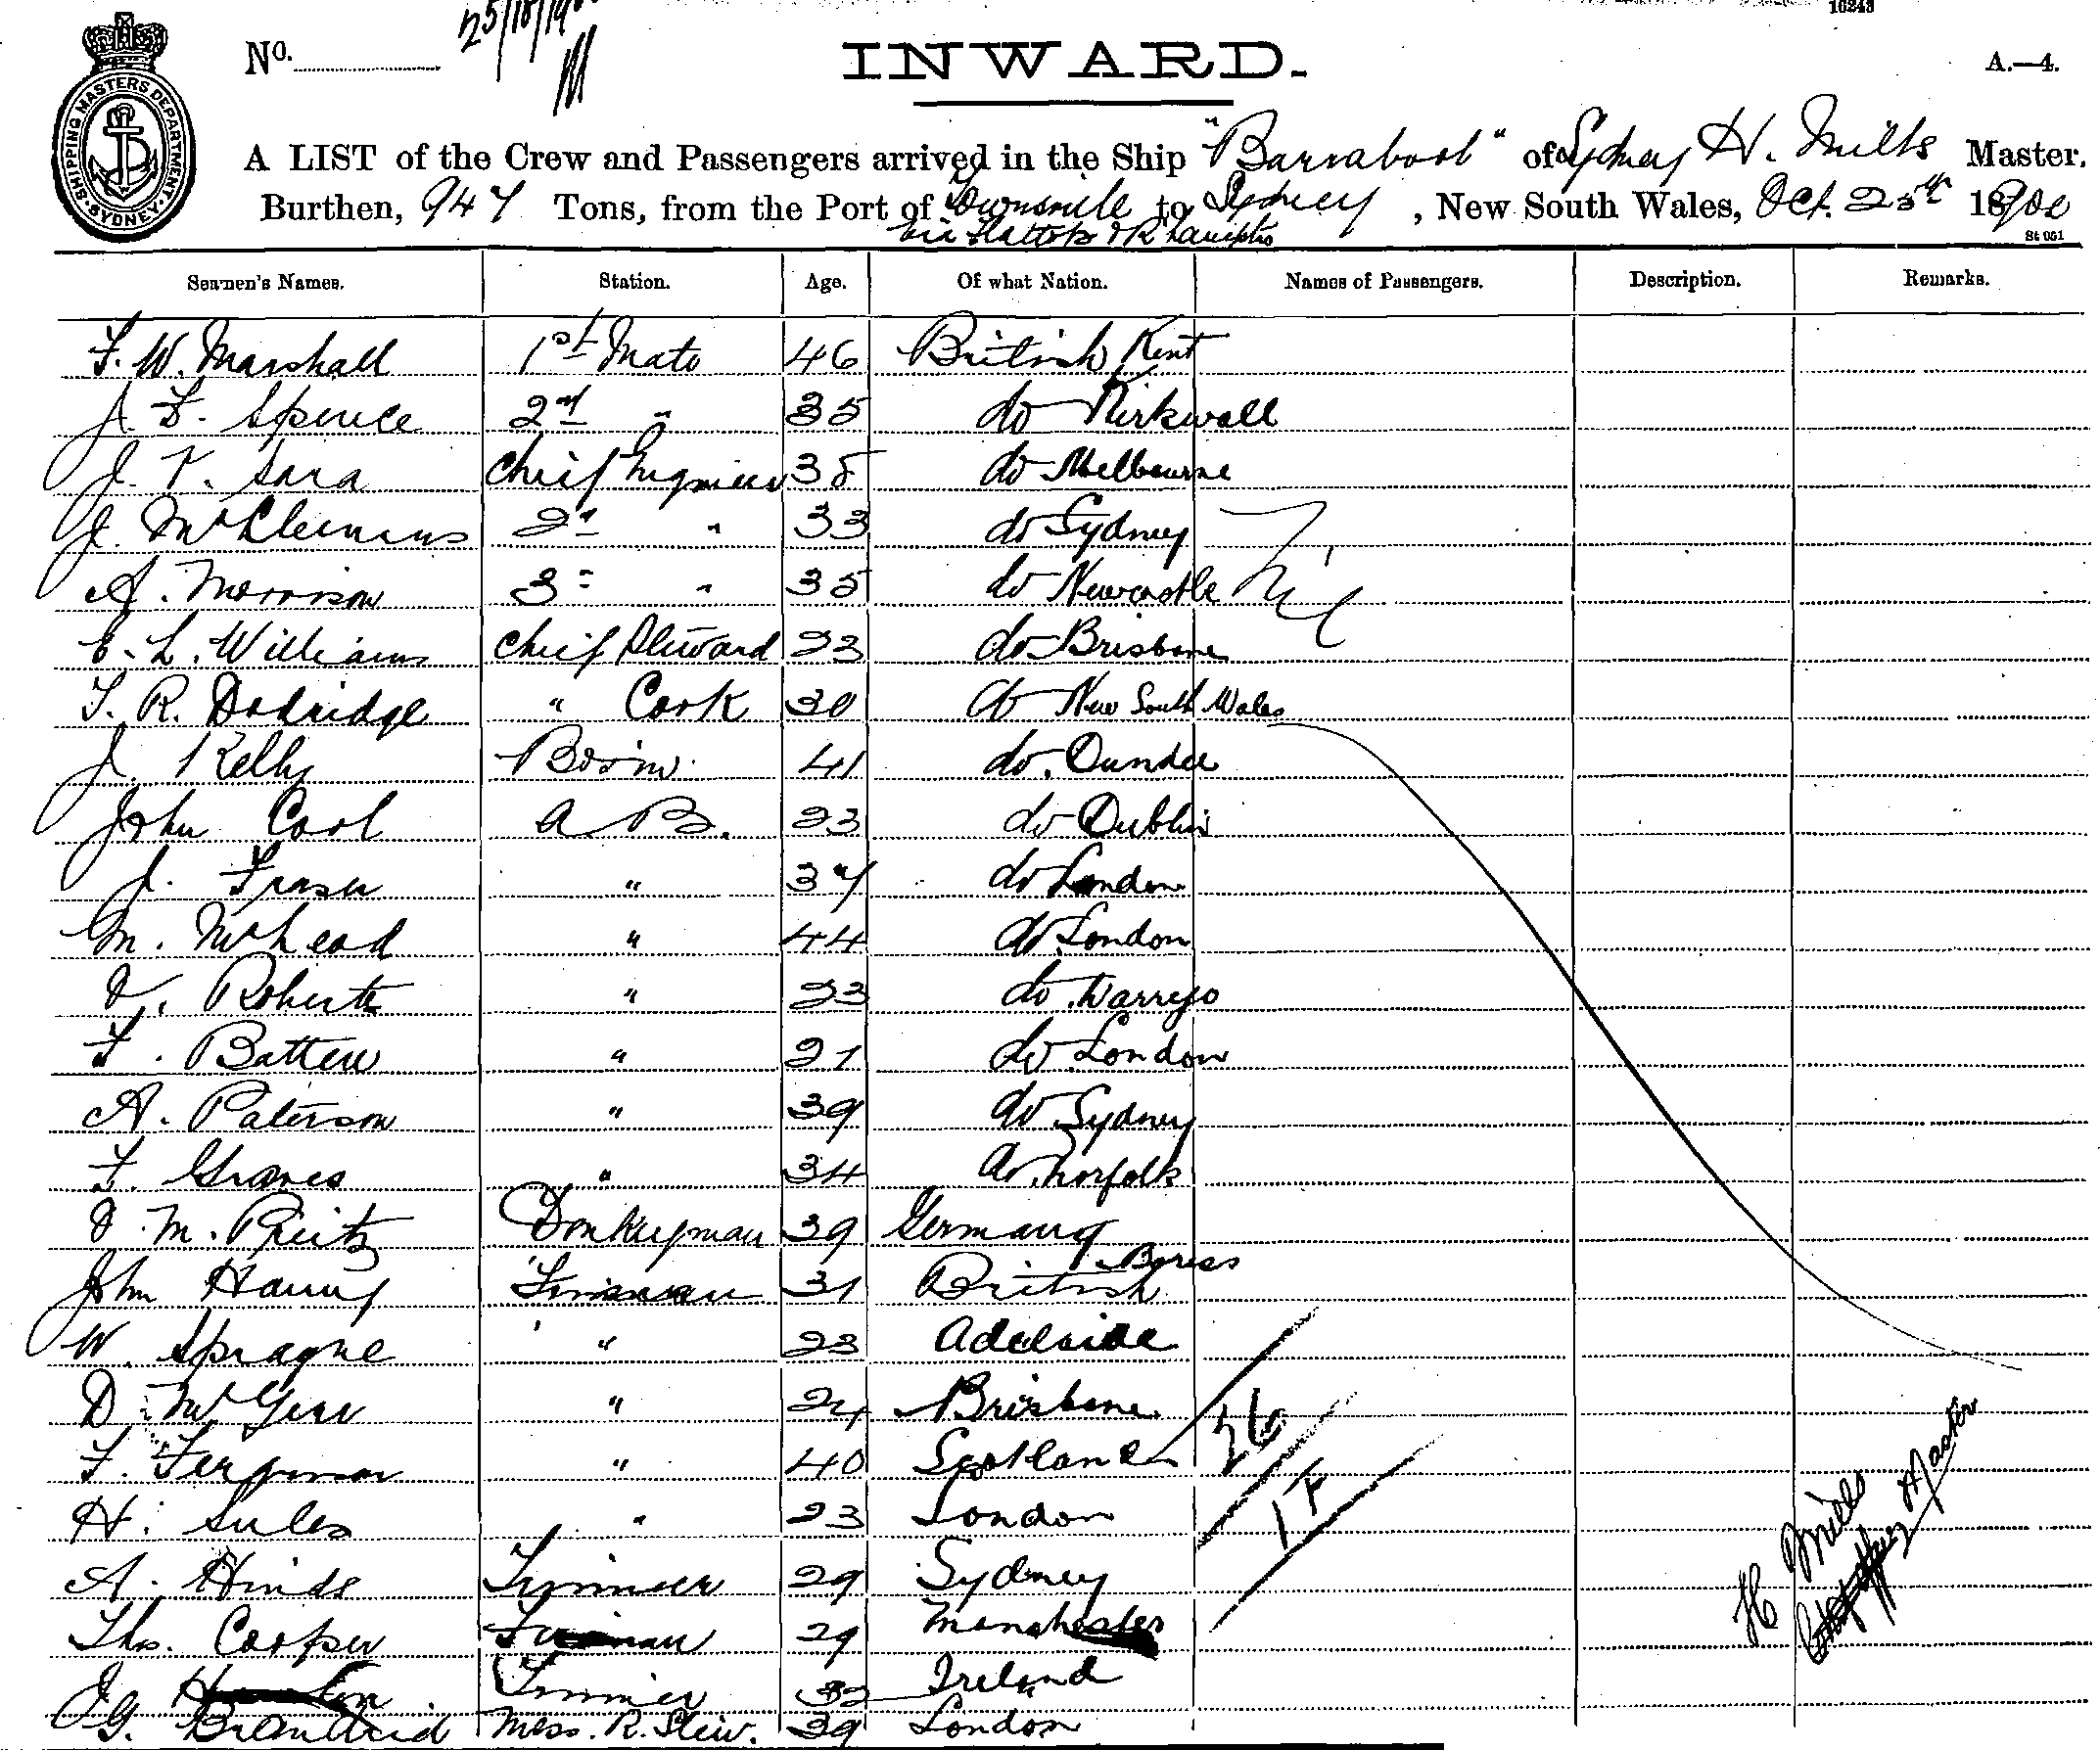 25/10/19
16243
No.
INWARD.
A.—4.
SHIPPING MASTERS DEPARTMENT. SYDNEY.
A LIST of the Crew and Passengers arrived in the Ship "Barrabool" of Sydney H. Mills Master.
Burthen, 947 Tons, from the Port of Townsville to Sydney, New South Wales, Oct. 25th 1900
via
St 051
Seamen's Names. Station. Age. Of what Nation. Names of Passengers. Description. Remarks.
F. W. Marshall 1st Mate 46 British Kent
J. F. Spence 2nd " 35 do Kirkwall
J. V. Sara Chief Engineer 38 do Melbourne
J. McClemens 2nd " 33 do Sydney
A. Morrison 3 " 35 do Newcastle Nil
E. L. Williams Chief Steward 23 do Brisbane
T. R. Dodridge " Cook 30 do New South Wales
J. Kelly Bosin 41 do. Dundee
John Cool A B. 23 do Dublin
J. Fraser " 37 do London
M. McLeod " 44 do London
V. Roberts " 23 do Warrego
F. Batten " 21 do London
A. Paterson " 39 do Sydney
F. Graves " 34 do Norfolk
J. M. Pruitz Donkeyman 39 Germany
John Harry Fireman 31 British
W. Sprague " 23 Adelaide
D. McGerr " 24 Brisbane
F. Ferguson " 40 Scotland
26
H. Sules " 23 London
17
A. Hinds Trimmer 29 Sydney
Thos. Cooper Fireman 29 Manchester
J Trimmer 32 Ireland
G. Mess. R. Stew. 39 London
H Mills
Master